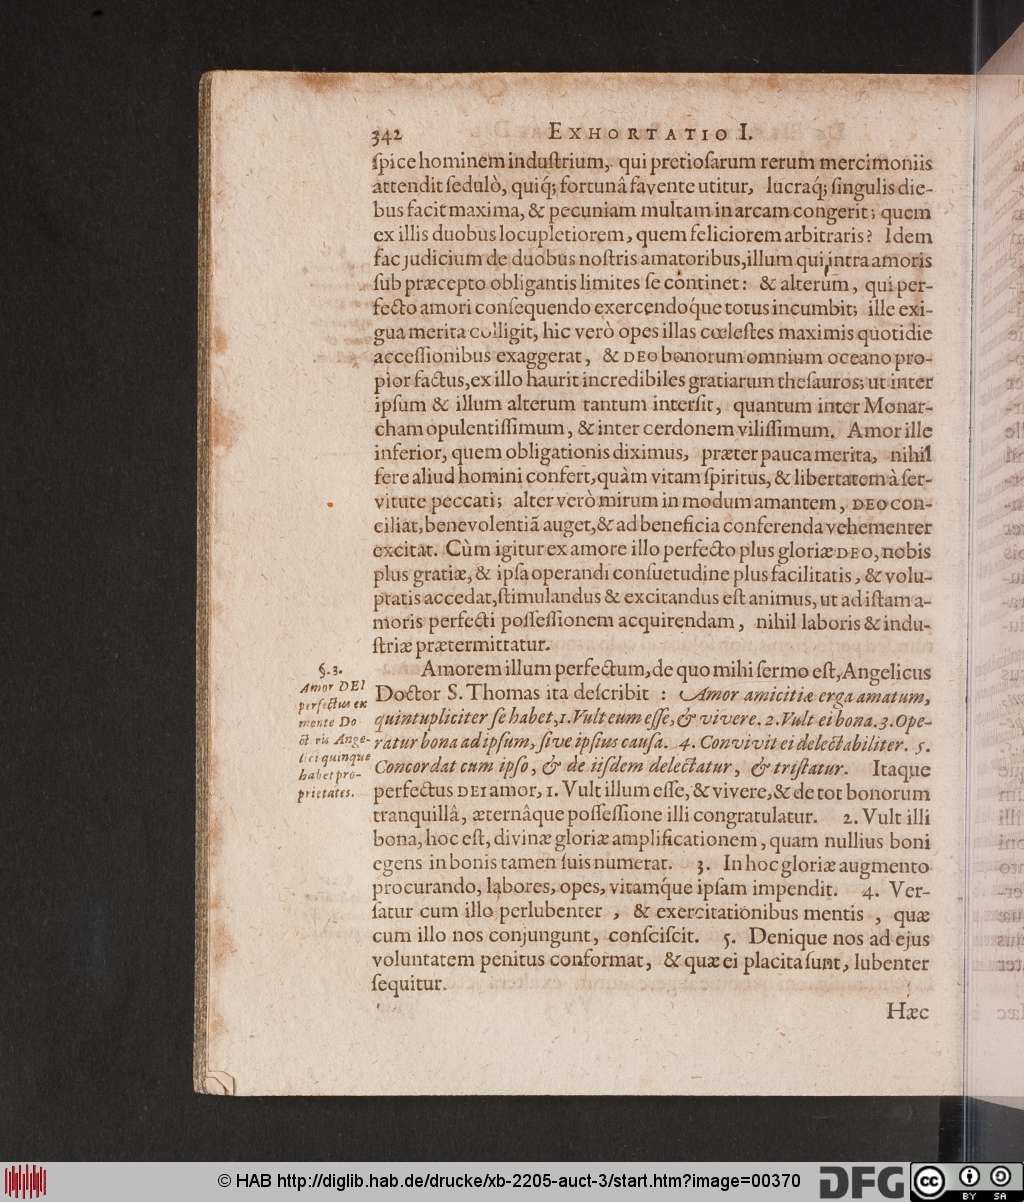 342 EXHORTATIO I.
ſpice hominem induſtrium, qui pretioſarum rerum mercimoniis
attendit ſedulò, quiq́; fortunâ favente utitur, lucraq́; ſingulis die-
bus facit maxima, & pecuniam multam in arcam congerit; quem
ex illis duobus locupletiorem, quem feliciorem arbitraris? Idem
fac judicium de duobus noſtris amatoribus, illum qui intra amoris
ſub præcepto obligantis limites ſe continet: & alterum, qui per-
fecto amori conſequendo exercendoq́ue totus incumbit; ille exi-
gua merita colligit, hic verò opes illas cœleſtes maximis quotidie
acceſſionibus exaggerat, & DEO bonorum omnium oceano pro-
pior factus, ex illo haurit incredibiles gratiarum theſauros; ut inter
ipſum & illum alterum tantum interſit, quantum inter Monar-
cham opulentiſſimum, & inter cerdonem viliſſimum. Amor ille
inferior, quem obligationis diximus, præter pauca merita, nihil
fere aliud homini confert, quàm vitam ſpiritus, & libertatem à ſer-
vitute peccati; alter verò mirum in modum amantem, DEO con-
ciliat, benevolentiã auget, & ad beneficia conferenda vehementer
excitat. Cùm igitur ex amore illo perfecto plus gloriæ DEO, nobis
plus gratiæ, & ipſa operandi conſuetudine plus facilitatis, & volu-
ptatis accedat, ſtimulandus & excitandus eſt animus, ut ad iſtam a-
moris perfecti poſſeſſionem acquirendam, nihil laboris & indu-
ſtriæ prætermittatur.
§. 3.
Amor DEI
perfectus ex
mente Do-
ctoris Ange-
lici quinque
habet pro-
prietates.
Amorem illum perfectum, de quo mihi ſermo eſt, Angelicus
Doctor S. Thomas ita deſcribit : Amor amicitiæ erga amatum,
quintupliciter ſe habet, 1. Vult eum eſſe, & vivere. 2. Vult ei bona. 3. Ope-
ratur bona ad ipſum, ſive ipſius cauſa. 4. Convivit ei delectabiliter. 5.
Concordat cum ipſo, & de iiſdem delectatur, & triſtatur. Itaque
perfectus DEI amor, 1. Vult illum eſſe, & vivere, & de tot bonorum
tranquillâ, æternâque poſſeſſione illi congratulatur. 2. Vult illi
bona, hoc eſt, divinæ gloriæ amplificationem, quam nullius boni
egens in bonis tamen ſuis numerat. 3. In hoc gloriæ augmento
procurando, labores, opes, vitamq́ue ipſam impendit. 4. Ver-
ſatur cum illo perlubenter , & exercitationibus mentis , quæ
cum illo nos conjungunt, conſciſcit. 5. Denique nos ad ejus
voluntatem penitus conformat, & quæ ei placita ſunt, lubenter
ſequitur.
Hæc
© HAB http://diglib.hab.de/drucke/xb-2205-auct-3/start.htm?image=00370
DFG
cc BY SA